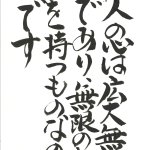 人の心は広大無
であり、無限の
を持つものなの
です